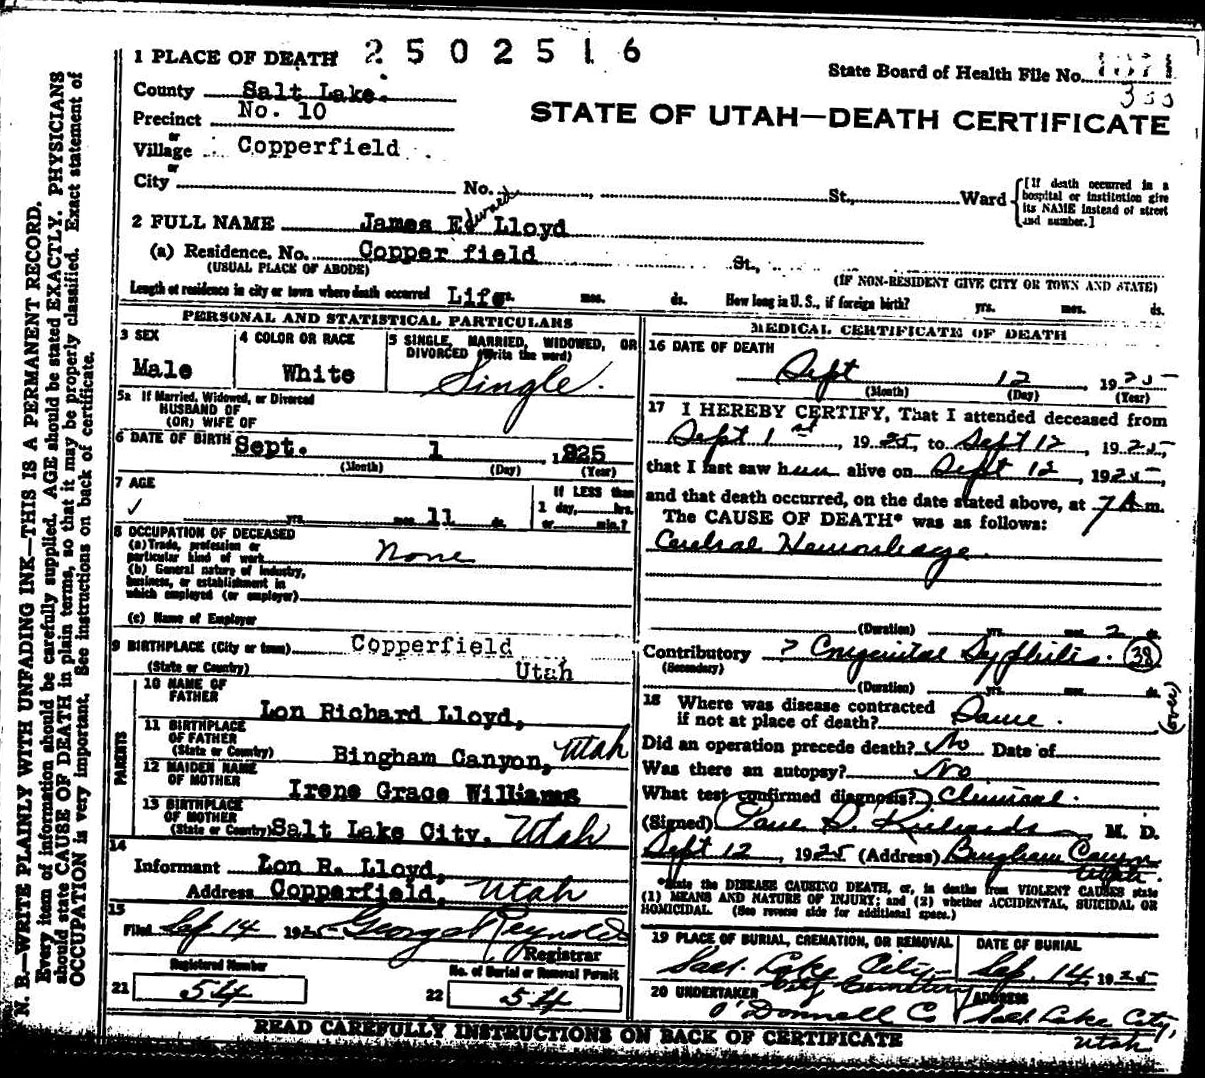 1 PLACE OF DEATH 2502516
State Board of Health File No.
County Salt Lake.
Precinct No. 10
STATE OF UTAH—DEATH CERTIFICATE
or
Village Copperfield
or
City No. St., Ward
[If death occurred in a hospital or institution give its NAME instead of street and number.]
2 FULL NAME James Edward Lloyd
(a) Residence. No. Copper field St.,
(USUAL PLACE OF ABODE) (IF NON-RESIDENT GIVE CITY OR TOWN AND STATE)
Length of residence in city or town where death occurred Life yrs. mos. ds. How long in U. S., if foreign birth? yrs. mos. ds.
PERSONAL AND STATISTICAL PARTICULARS
3 SEX
Male
4 COLOR OR RACE
White
5 SINGLE, MARRIED, WIDOWED, OR DIVORCED (Write the word)
Single.
5a If Married, Widowed, or Divorced
HUSBAND OF
(OR) WIFE OF
6 DATE OF BIRTH Sept. 1, 1925
(Month) (Day) (Year)
7 AGE
yrs. mos. 11 ds.
If LESS than
1 day, hrs.
or min.?
8 OCCUPATION OF DECEASED
(a) Trade, profession or
particular kind of work None
(b) General nature of industry,
business, or establishment in
which employed (or employer)
(c) Name of Employer
9 BIRTHPLACE (City or town) Copperfield
(State or Country) Utah
PARENTS
10 NAME OF
FATHER Lon Richard Lloyd,
11 BIRTHPLACE
OF FATHER
(State or Country) Bingham Canyon, Utah
12 MAIDEN NAME
OF MOTHER Irene Grace Williams
13 BIRTHPLACE
OF MOTHER
(State or Country) Salt Lake City. Utah
14
Informant Lon R. Lloyd,
Address Copperfield, Utah
15
Filed Sep 14 1925 George Reynolds
Registrar
Registered Number
21 54
No. of Burial or Removal Permit
22 54
MEDICAL CERTIFICATE OF DEATH
16 DATE OF DEATH
Sept 12, 1925
(Month) (Day) (Year)
17 I HEREBY CERTIFY, That I attended deceased from
Sept 1st, 1925, to Sept 12, 1925,
that I last saw him alive on Sept 12, 1925,
and that death occurred, on the date stated above, at 7 A m.
The CAUSE OF DEATH* was as follows:
Cerebral Hemorrhage
(Duration) yrs. mos. 2 ds.
Contributory ? Congenital Syphilis. (38)
(Secondary)
(Duration) yrs. mos. ds.
18 Where was disease contracted
if not at place of death? Same.
(over)
Did an operation precede death? No Date of
Was there an autopsy? No
What test confirmed diagnosis? Clinical.
(Signed) Paul S. Richards, M. D.
Sept 12, 1925 (Address) Bingham Canyon
Utah.
*State the DISEASE CAUSING DEATH, or, in deaths from VIOLENT CAUSES state
(1) MEANS AND NATURE OF INJURY; and (2) whether ACCIDENTAL, SUICIDAL OR
HOMICIDAL. (See reverse side for additional space.)
19 PLACE OF BURIAL, CREMATION, OR REMOVAL
Salt Lake City
City Cemetery
DATE OF BURIAL
Sep. 14 1925
20 UNDERTAKER
O'Donnell Co
ADDRESS
Salt Lake City,
Utah
READ CAREFULLY INSTRUCTIONS ON BACK OF CERTIFICATE
N. B.—WRITE PLAINLY WITH UNFADING INK—THIS IS A PERMANENT RECORD.
Every item of information should be carefully supplied. AGE should be stated EXACTLY. PHYSICIANS
should state CAUSE OF DEATH in plain terms, so that it may be properly classified. Exact statement of
OCCUPATION is very important. See instructions on back of certificate.